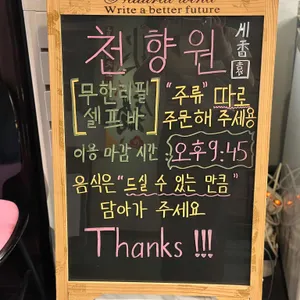 Write a better future
천향원
무한리필 "주류" 따로
셀프바 주문해 주세용
이용 마감 시간 : 오후 9:45
음식은 "드실 수 있는 만큼"
담아가 주세요
Thanks !!!